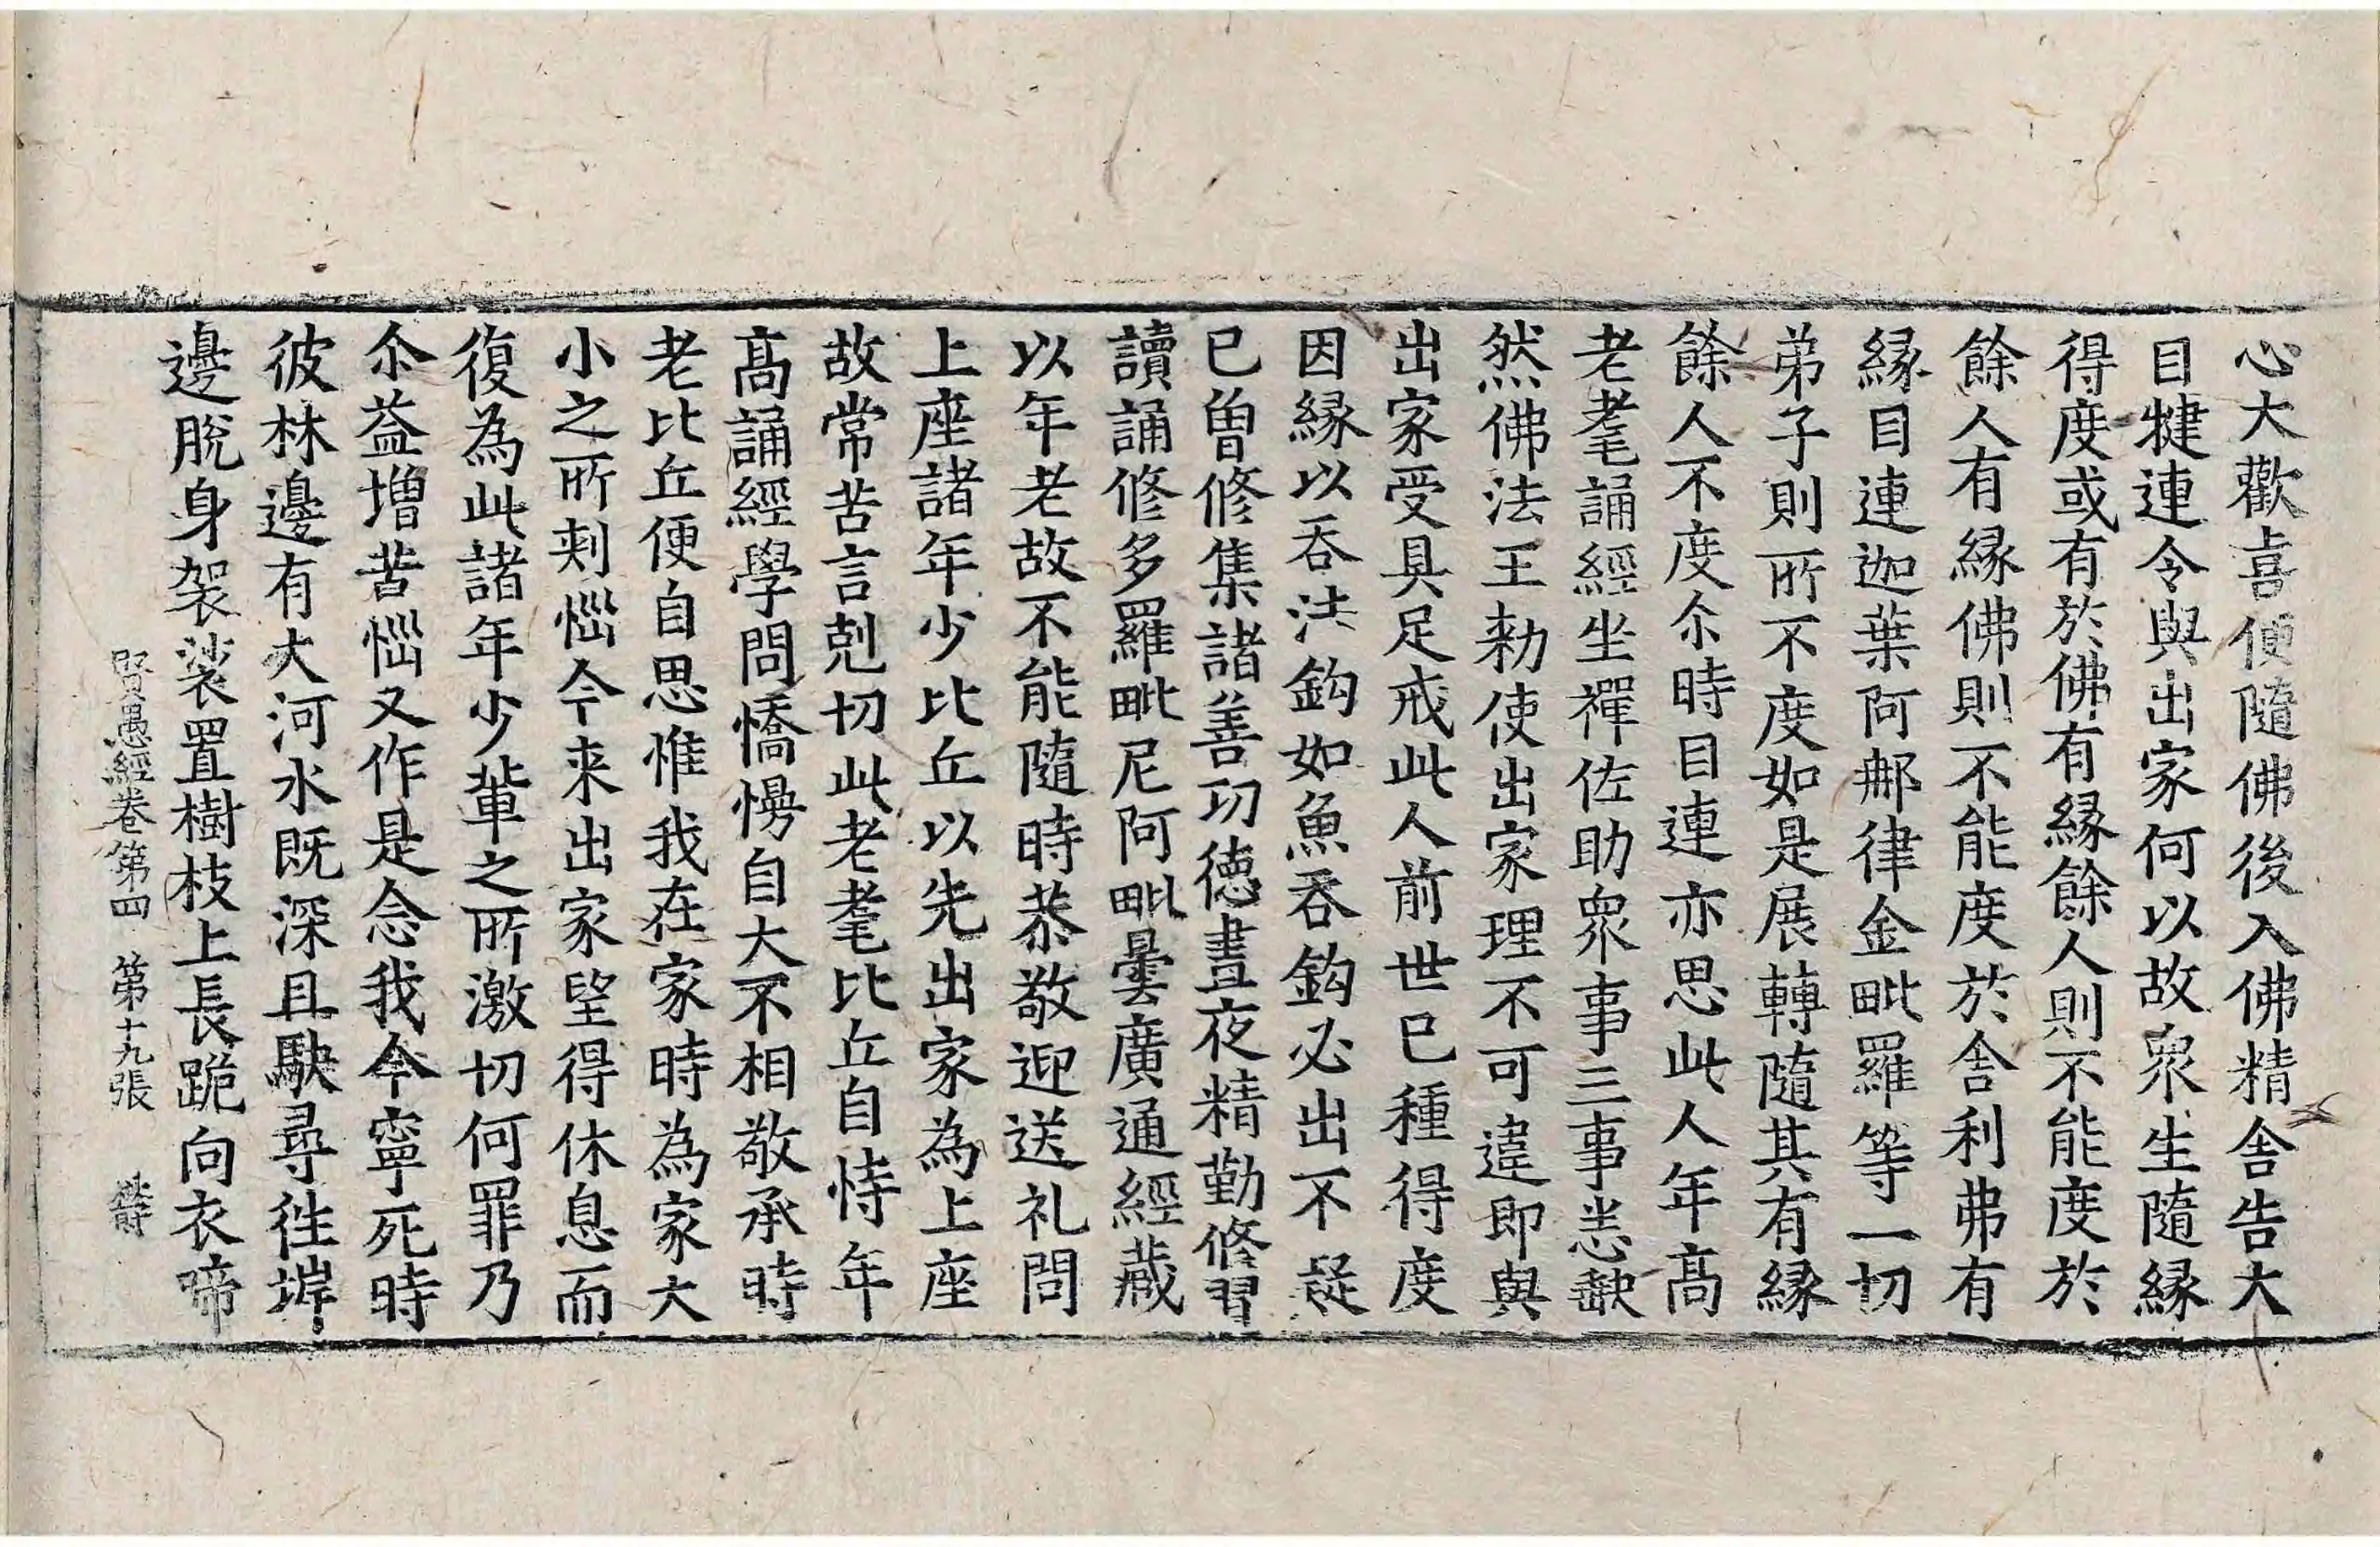 心大歡喜便隨佛後入佛精舍告大
目犍連令與出家何以故衆生隨緣
得度或有於佛有緣餘人則不能度於
餘人有緣佛則不能度於舍利弗有
緣目連迦葉阿那律金毗羅等一切
弟子則所不度如是展轉隨其有緣
餘人不度尒時目連亦思此人年髙
老耄誦經坐禪佐助衆事三事悉缺
然佛法王勑使出家理不可違即與
出家受具足戒此人前世已種得度
因緣以吞法鈎如魚吞鈎必出不疑
已曽修集諸善功德晝夜精勤修習
讀誦修多羅毗尼阿毗曇廣通經蔵
以年老故不能隨時恭敬迎送礼問
上座諸年少比丘以先出家為上座
故常苦言剋切此老耄比丘自恃年
髙誦經學問憍慢自大不相敬承時
老比丘便自思惟我在家時為家大
小之所剌惱今来出家望得休息而
復為此諸年少輩之所激切何罪乃
尒益増苦惱又作是念我今寧死時
彼林邊有大河水既深且駃尋徃堓
邊脫身袈裟置樹枝上長跪向衣啼
賢愚經卷第四 第十九張